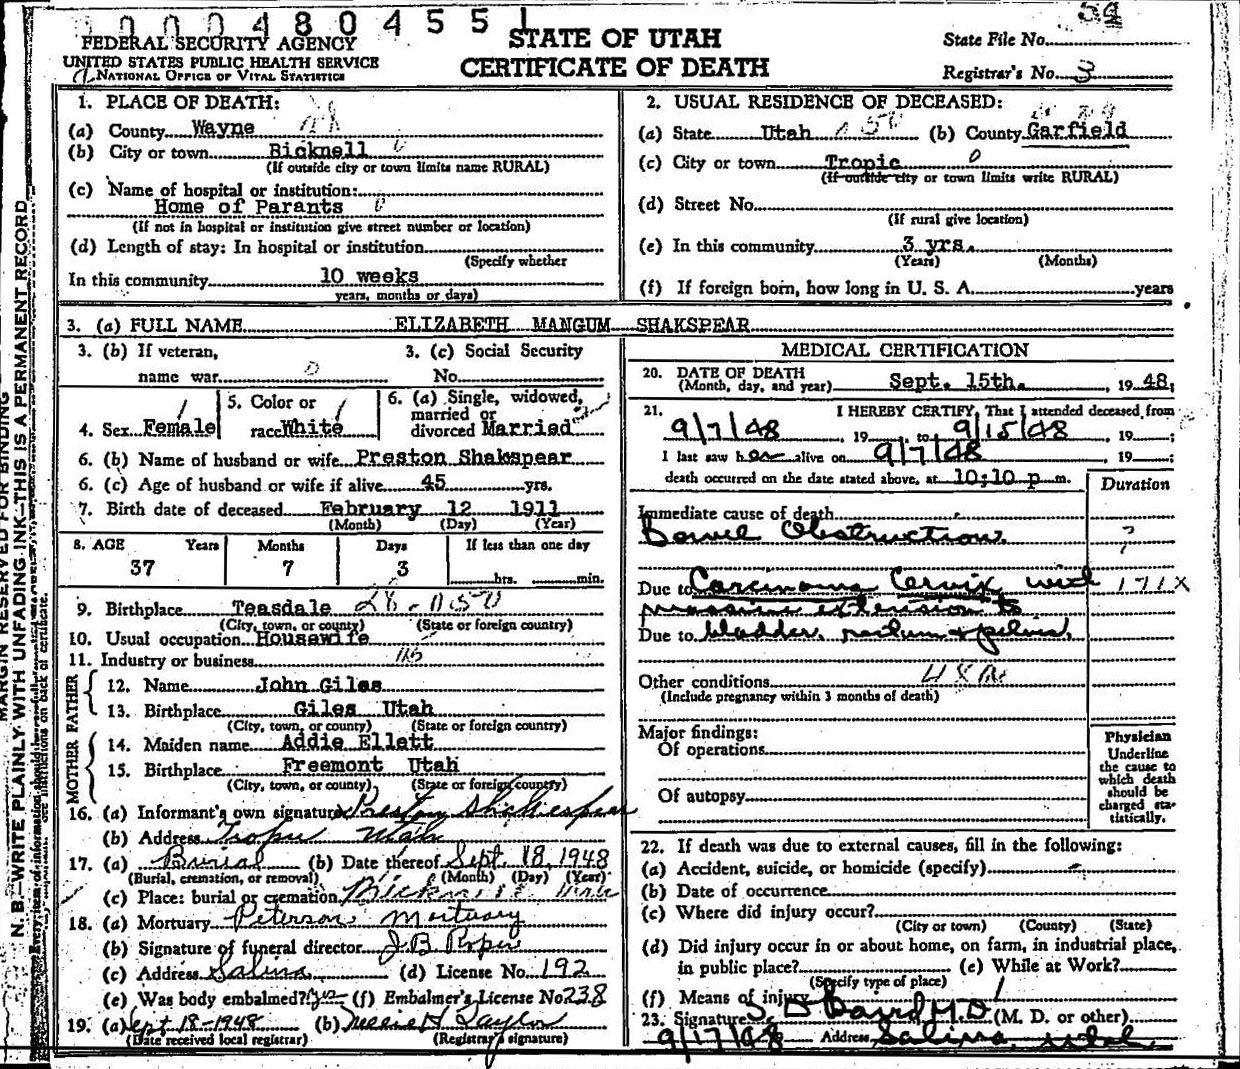 000480455
FEDERAL SECURITY AGENCY
UNITED STATES PUBLIC HEALTH SERVICE
NATIONAL OFFICE OF VITAL STATISTICS
STATE OF UTAH
CERTIFICATE OF DEATH
State File No.
Registrar's No. 3
1. PLACE OF DEATH:
(a) County Wayne
(b) City or town Bicknell
(If outside city or town limits name RURAL)
(c) Name of hospital or institution:
Home of Parants
(If not in hospital or institution give street number or location)
(d) Length of stay: In hospital or institution
(Specify whether
In this community 10 weeks
years, months or days)
2. USUAL RESIDENCE OF DECEASED:
(a) State Utah (b) County Garfield
(c) City or town Tropic
(If outside city or town limits write RURAL)
(d) Street No.
(If rural give location)
(e) In this community 3 yrs.
(Years) (Months)
(f) If foreign born, how long in U. S. A. years
3. (a) FULL NAME ELIZABETH MANGUM SHAKSPEAR
3. (b) If veteran,
name war
3. (c) Social Security
No.
4. Sex Female
5. Color or
race White
6. (a) Single, widowed,
married or
divorced Married
6. (b) Name of husband or wife Preston Shakspear
6. (c) Age of husband or wife if alive 45 yrs.
7. Birth date of deceased February 12 1911
(Month) (Day) (Year)
8. AGE Years Months Days If less than one day
37 7 3 hrs. min.
9. Birthplace Teasdale
(City, town, or county) (State or foreign country)
10. Usual occupation Housewife
11. Industry or business
FATHER
12. Name John Giles
13. Birthplace Giles Utah
(City, town, or county) (State or foreign country)
MOTHER
14. Maiden name Addie Ellett
15. Birthplace Freemont Utah
(City, town, or county) (State or foreign country)
16. (a) Informant's own signature Preston Shakespear
(b) Address Tropic Utah
17. (a) Burial (b) Date thereof Sept. 18, 1948
(Burial, cremation, or removal) (Month) (Day) (Year)
(c) Place: burial or cremation Bicknell Utah
18. (a) Mortuary Peterson Mortuary
(b) Signature of funeral director J.B. Roper
(c) Address Salina (d) License No. 192
(e) Was body embalmed? Yes (f) Embalmer's License No 238
19. (a) Sept 18-1948 (b)
(Date received local registrar) (Registrar's signature)
MEDICAL CERTIFICATION
20. DATE OF DEATH
(Month, day, and year) Sept. 15th. , 19 48;
21. I HEREBY CERTIFY, That I attended deceased from
9/7/48 , 19 , to 9/15/48 , 19 ;
I last saw her alive on 9/7/48 , 19 ;
death occurred on the date stated above, at 10;10 p m.
Duration
Immediate cause of death
Bowel Obstruction. ?
Due to Carcinoma Cervix, with 171X
massive extension to
Due to bladder, rectum + pelvis.
Other conditions
(Include pregnancy within 3 months of death)
Major findings:
Of operations
Of autopsy
Physician
Underline
the cause to
which death
should be
charged sta-
tistically.
22. If death was due to external causes, fill in the following:
(a) Accident, suicide, or homicide (specify)
(b) Date of occurrence
(c) Where did injury occur?
(City or town) (County) (State)
(d) Did injury occur in or about home, on farm, in industrial place,
in public place? (e) While at Work?
(Specify type of place)
(f) Means of injury
23. Signature M.D. (M. D. or other)
9/17/48 Address Salina, Utah.
MARGIN RESERVED FOR BINDING
N. B.—WRITE PLAINLY WITH UNFADING INK—THIS IS A PERMANENT RECORD